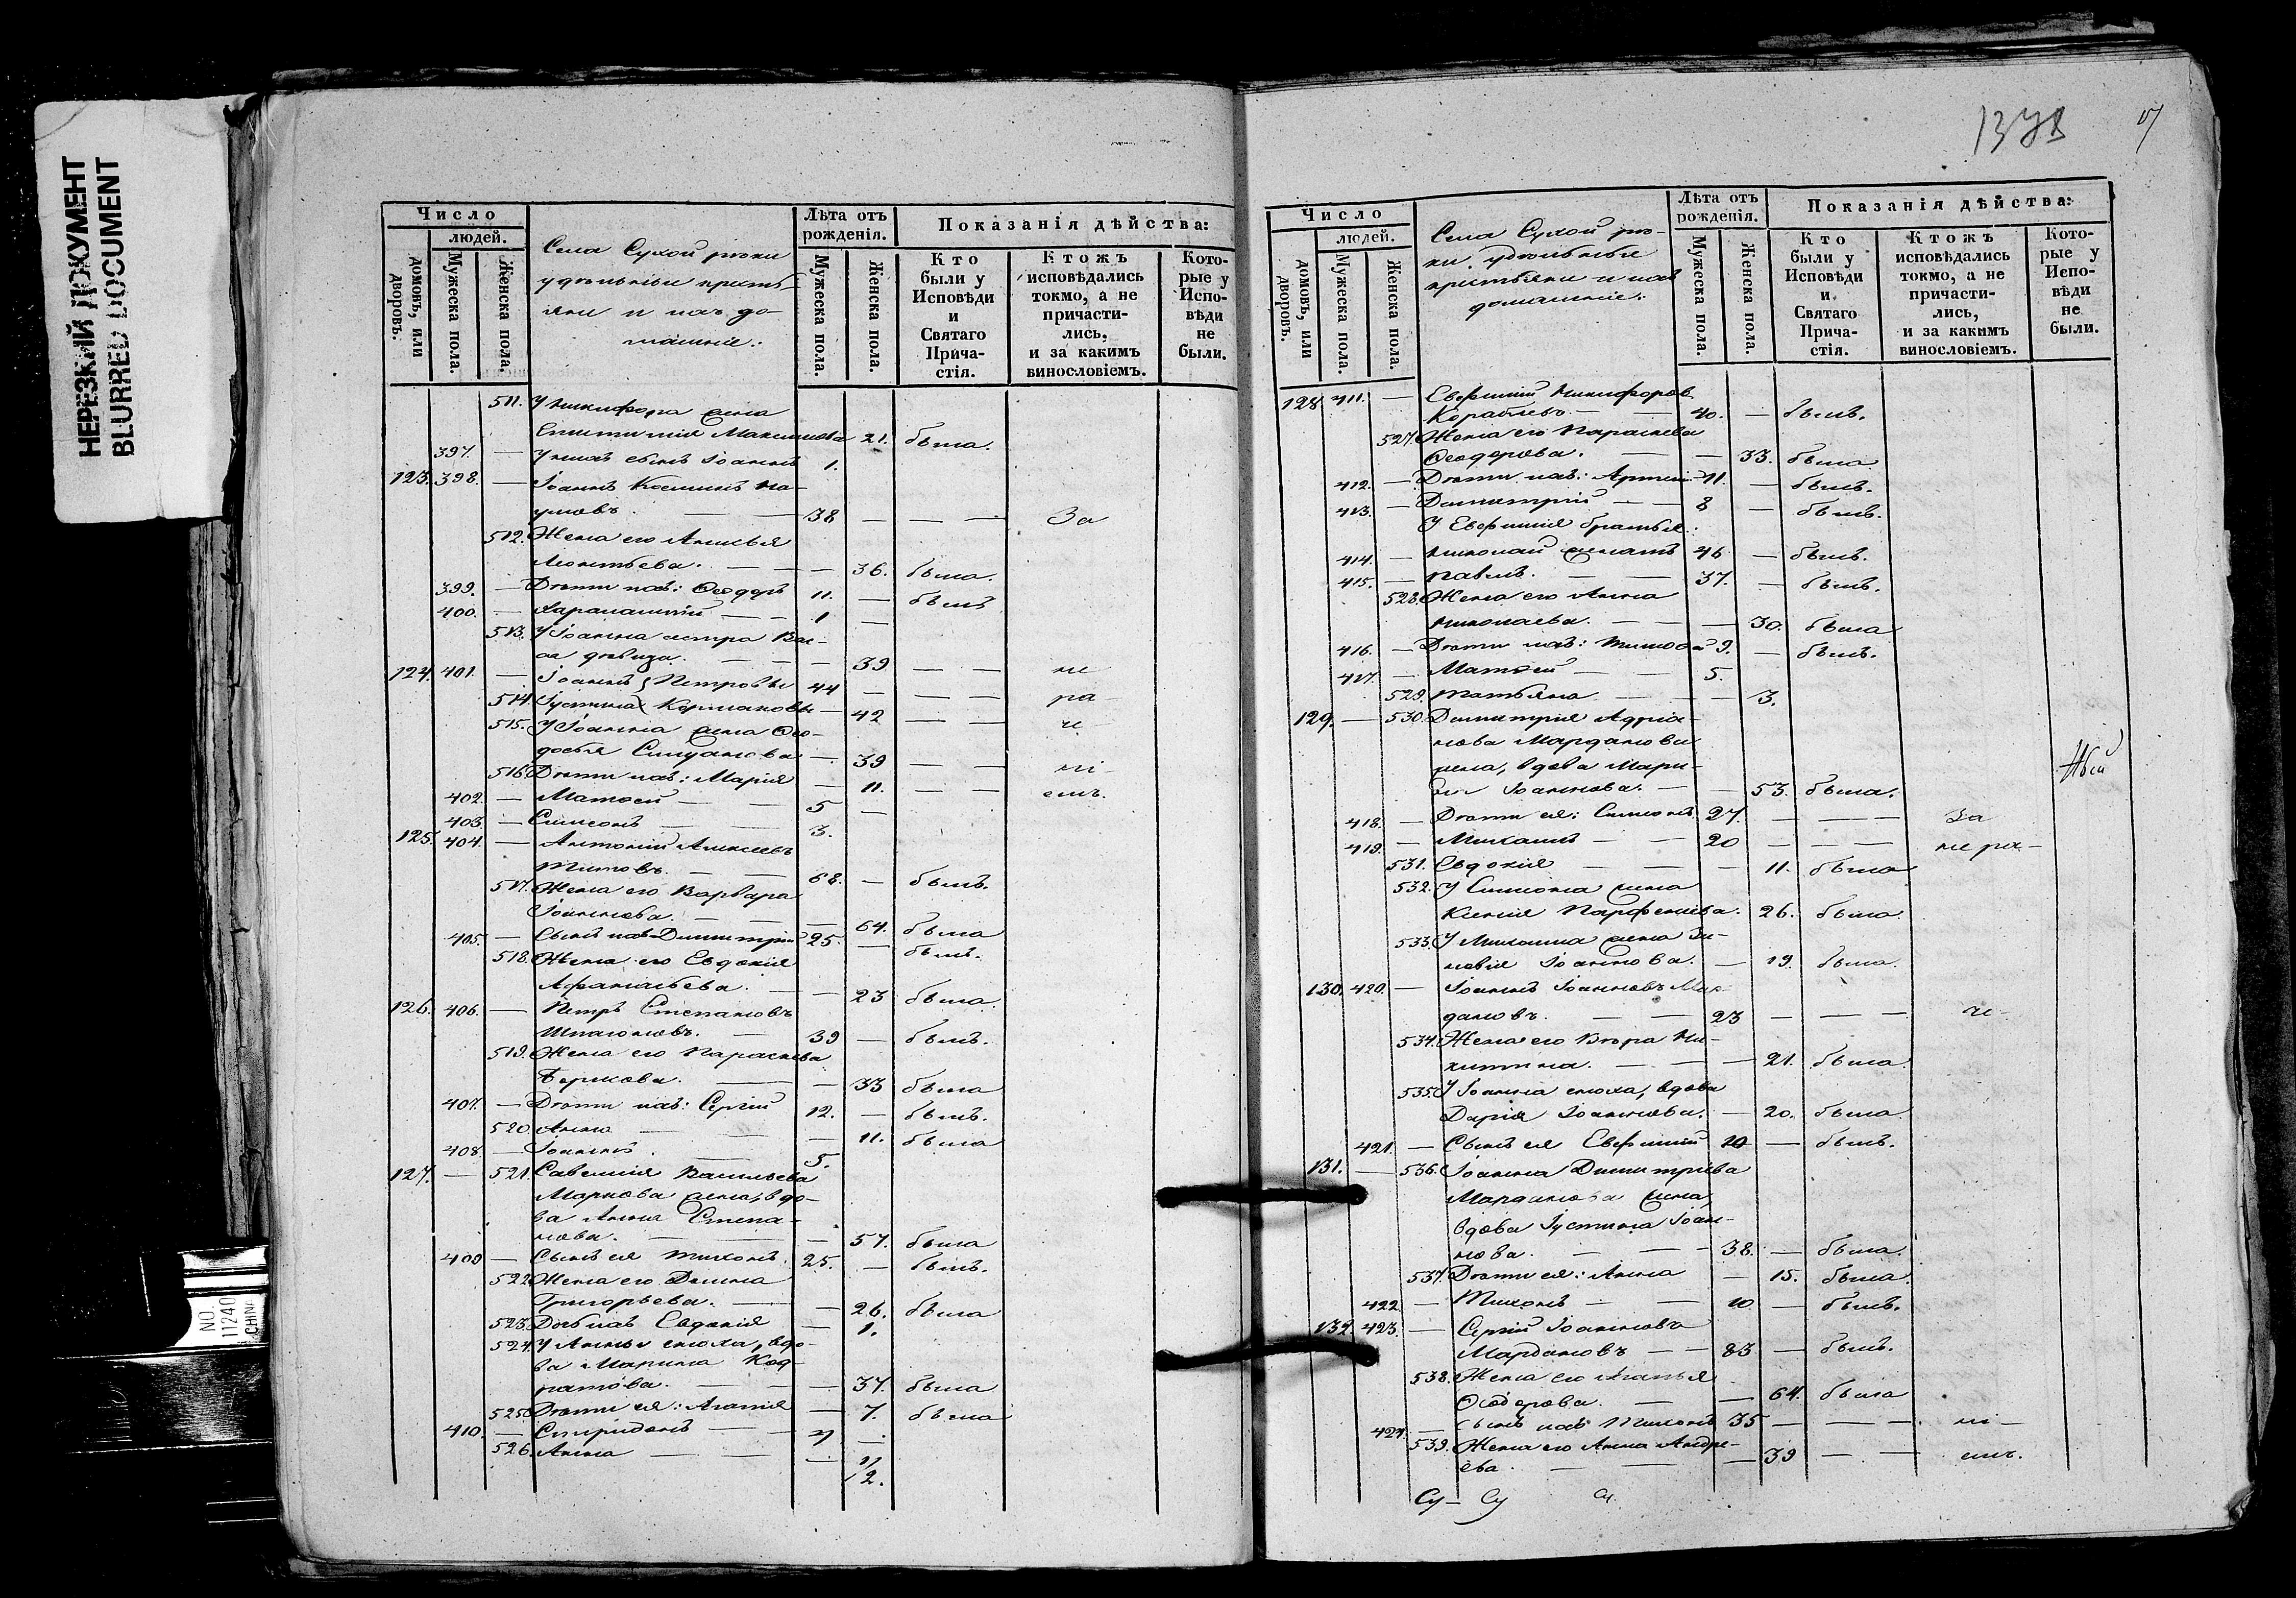 НЕРЕЗКИЙ ДОКУМЕНТ
BLURRED DOCUMENT
NO. 11240
Число
людей.
домовъ, или дворовъ.
Мужеска пола.
Женска пола.
Села Сухой рѣки
удѣльные кресть-
яне и ихъ до-
машніе:
Лѣта отъ рожденія.
Мужеска пола.
Женска пола.
Показанія дѣйства:
Кто были у Исповѣди и Святаго Прича-стія.
Ктожъ исповѣдались токмо, а не причасти-лись, и за какимъ винословіемъ.
Кото-рые у Испо-вѣди не были.
511. У Никифора жена
Максимова 21. была.
397. — У нихъ сынъ Іоаннъ 1.
123. 398. — Іоаннъ Косминъ На-
умовъ. — 38 — — — За
512. Жена его
Леонтьева. — — 36. была.
399. — Дѣти ихъ: Ѳеодоръ 11. — былъ
400. — Харалампій — 1 —
513. У Іоанна сестра Вас-
са дѣвица. — — 39 — — не
124. 401. — Іоаннъ Петровы 44 — — — ра-
514. Іустина — 42 — — че-
515. У Іоанна жена Ѳео-
досья — 39 — — ні-
516. Дѣти ихъ: Марія — 11. — — емъ.
402. — Матѳей — 5 —
403. — Симеонъ 3.
125. 404. — Антоній Алексѣевъ
Титовъ. — 68. — былъ.
517. Жена его Варвара
Іоаннова. — — 64. была
405. — Сынъ ихъ Димитрій 25. — былъ.
518. Жена его Евдокія
Афанасьева. — — 23 была.
126. 406. — Петръ Степановъ
39 — былъ.
519. Жена его Параскева
— 33 была
407. — Дѣти ихъ: Сергій 12. — былъ.
520. Анна — — 11. была
408. — Іоаннъ. 5.
127. — 521. Савелія Васильева
Маркова жена, вдо-
ва Анна Степа-
нова. — — 57. была
409 — Сынъ ея Тихонъ. 25. — былъ.
522. Жена его Домна
Григорьева. — — 26. была
523. Дочь ихъ Евдокія — 1.
524. У Анны сноха, вдо-
ва Марина Код-
ратова. — — 37. была
525. Дѣти ея: Агафія — 7. была
410. — Спиридонъ — 4 —
526. Анна — — 2.
1378
Число
людей.
домовъ, или дворовъ.
Мужеска пола.
Женска пола.
Села Сухой рѣ-
ки удѣльные
крестьяне и ихъ
домашніе:
Лѣта отъ рожденія.
Мужеска пола.
Женска пола.
Показанія дѣйства:
Кто были у Исповѣди и Святаго Прича-стія.
Ктожъ исповѣдались токмо, а не причасти-лись, и за какимъ винословіемъ.
Кото-рые у Испо-вѣди не были.
128 411. — Евфимій Никифоровъ
Кораблевъ. — 40. — былъ.
527. Жена его Параскева
Ѳеодорова. — — 33. была
412. — Дѣти ихъ: Артемій 11. — былъ.
413. — Димитрій — 8 — былъ.
У Евфимія братья:
414. — Николай женатъ 46 — былъ.
415. — Павелъ. — 37. — былъ.
528. Жена его Анна
Николаева. — — 30. была
416. — Дѣти ихъ: Тимоѳей 9. — былъ.
417. — Матѳей — 5.
529. Татьяна — — 3.
129. — 530. Димитрія Адріа-
нова Марданова
жена, вдова Мари-
Іоаннова. — — 53. была.
418. — Дѣти ея: Симеонъ 27. — — — За
419. — Михаилъ — 20 — — — не ра-
531. Евдокія — — 11. была
532. У Симеона жена
Ксенія Парфеніева. 26. была
533. У Михаила жена Зи-
новія Іоаннова. — 19. была.
130. 420. — Іоаннъ Іоанновъ Мар-
дановъ. — 23 — — — че-
534. Жена его Вѣра Ни-
китина. — — 21. была
535. У Іоанна сноха, вдова
Дарія Іоаннова. — 20. была
421. — Сынъ ея Евфимій 10 — былъ.
131. — 536. Іоанна Димитріева
Марданова жена,
вдова Іустина Іоан-
нова. — 38. — была.
537. Дѣти ея: Анна — 15. была.
422 — Тихонъ — 10 — былъ.
132. 423. — Сергій Іоанновъ
Мардановъ — 83 — былъ.
538. Жена его Агафья
Ѳеодорова. — — 64. была
424. — Сынъ ихъ Тихонъ 35 — — — ні-
539. Жена его Анна Андре-
ева. — — 39 — — емъ.
Су- Су